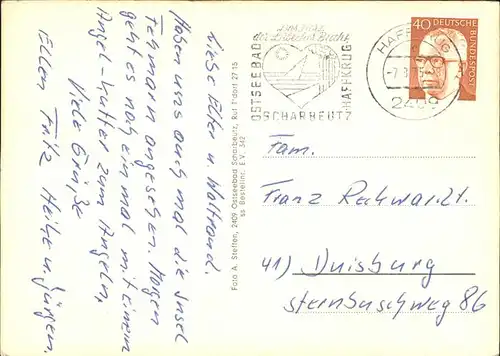 Liebe Eltern u. Waltraud.
Haben uns auch mal die Insel
Fehmarn angesehen. Morgen
geht es noch einmal mit einem
Angel-Kutter zum Angeln,
Viele Grüße
Ellen Fritz Heike u. Jürgen.
Foto A. Steffen, 2409 Ostseebad Scharbeutz, Ruf T'dorf 27 15
Bestellnr. E.V. 342
OSTSEEBAD
SCHARBEUTZ
HAFFKRUG
HAFFKRUG
2409
40 DEUTSCHE
BUNDESPOST
Fam.
Franz Rechwardt.
41) Duisburg
Sternbuschweg 86